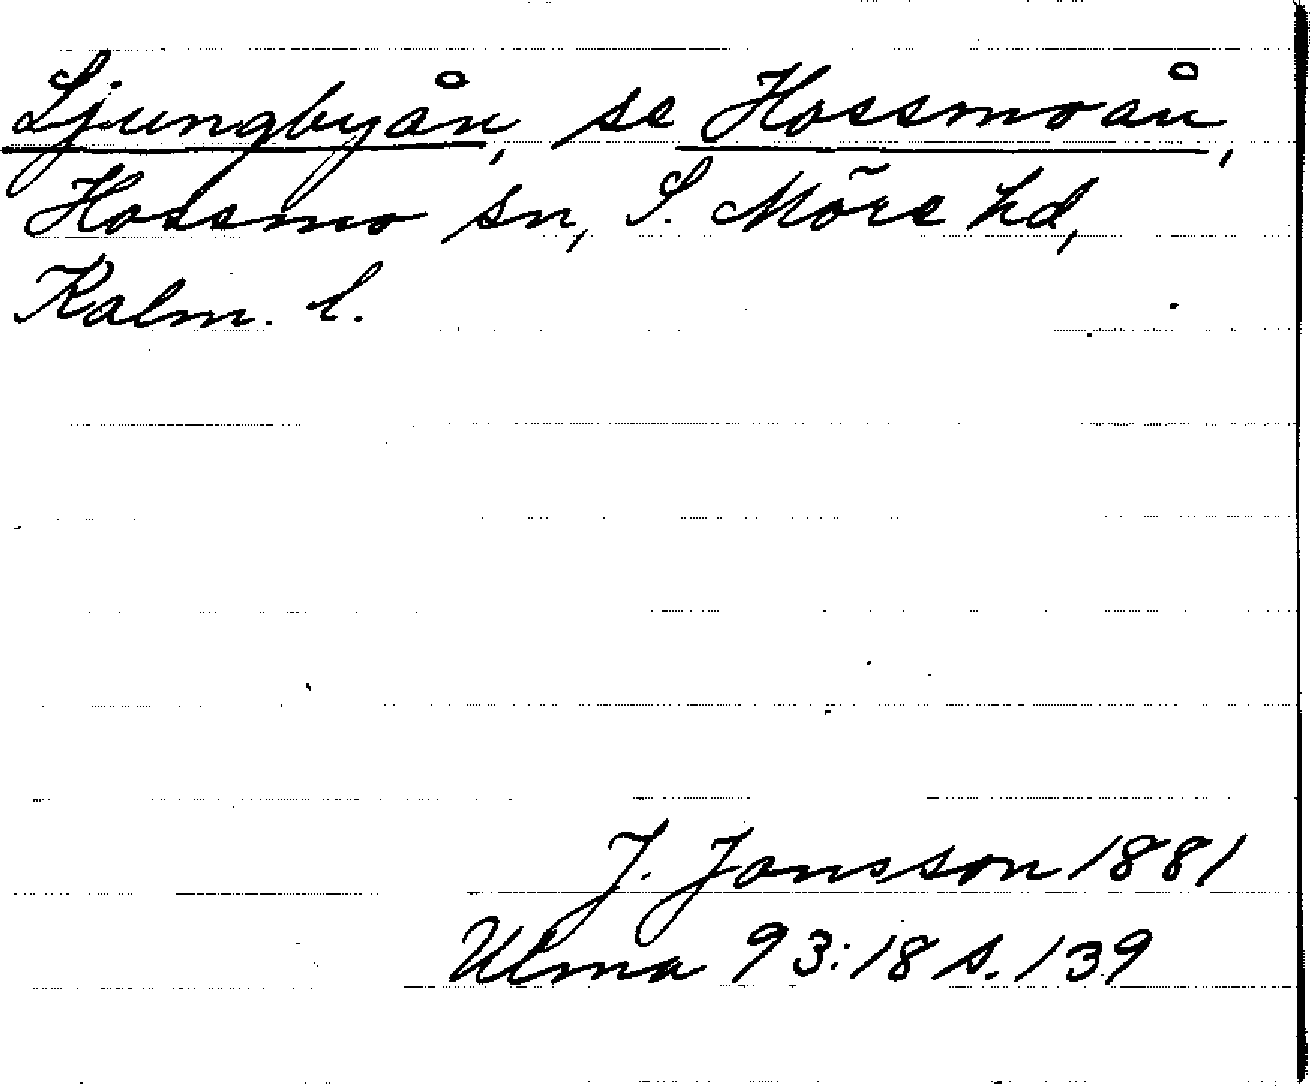 Ljungbyån, se Hossmoån,
Hossmo sn, S. Möre hd,
Kalm. l.
J. Jonsson 1881
Ulma 93:18 s. 139